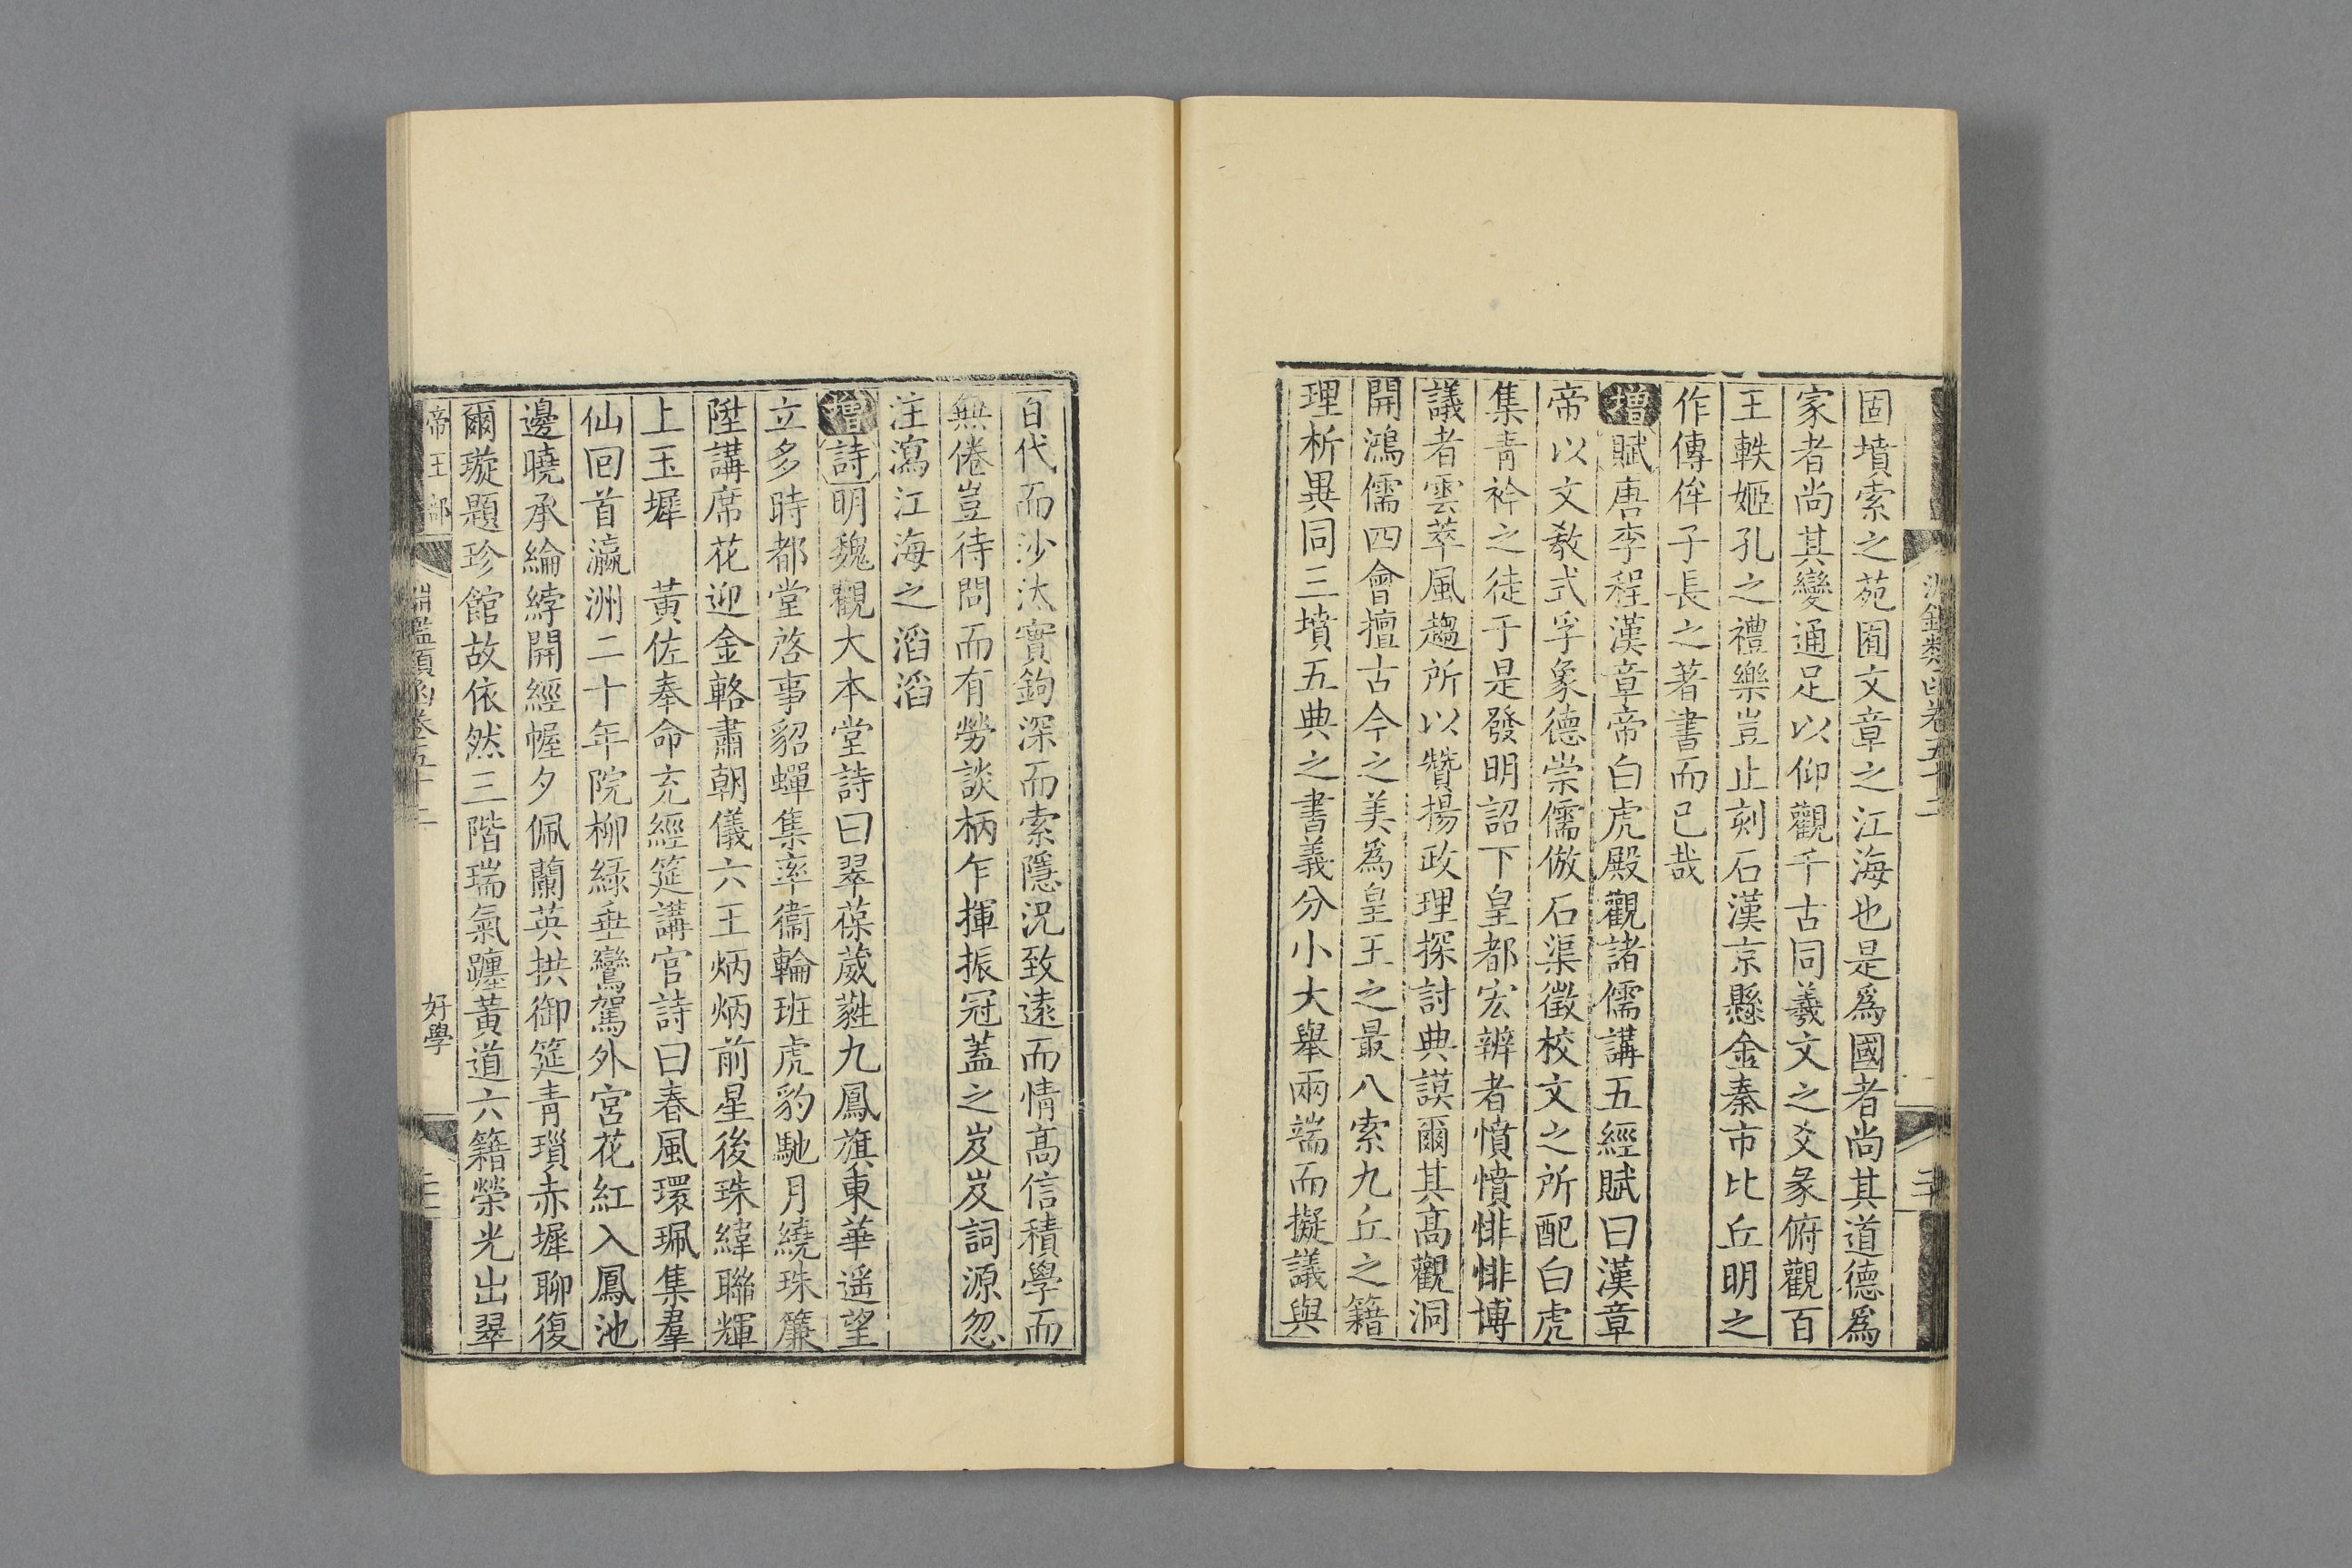 固墳索之苑囿文章之江海也是爲國者尚其道德爲
家者尚其變通足以仰觀千古同羲文之爻彖俯觀百
王軼姬孔之禮樂豈止刻石漢京懸金秦市比丘明之
作傳侔子長之著書而已哉
增賦唐李程漢章帝白虎殿觀諸儒講五經賦曰漢章
帝以文敎式孚象德崇儒倣石渠徵校文之所配白虎
集靑衿之徒于是發明詔下皇都宏辨者憤憤悱悱博
議者雲萃風趨所以贊揚政理探討典謨爾其高觀洞
開鴻儒四會擅古今之美爲皇王之最八索九丘之籍
理析異同三墳五典之書義分小大舉兩端而擬議與
百代而沙汰實鉤深而索隱況致遠而情高信積學而
無倦豈待問而有勞談柄乍揮振冠蓋之岌岌詞源忽
注瀉江海之滔滔
增詩明魏觀大本堂詩曰翠葆葳蕤九鳳旗東華遥望
立多時都堂啓事貂蟬集率衞輪班虎豹馳月繞珠簾
陞講席花迎金輅肅朝儀六王炳炳前星後珠緯聯輝
上玉墀 黃佐奉命充經筵講官詩曰春風環珮集羣
仙回首瀛洲二十年院柳綠垂鸞駕外宮花紅入鳳池
邊曉承綸綍開經幄夕佩蘭英拱御筵靑瑣赤墀聊復
爾璇題珍館故依然三階瑞氣躔黃道六籍榮光出翠
帝王部 淵鑑類函卷五十二 好學